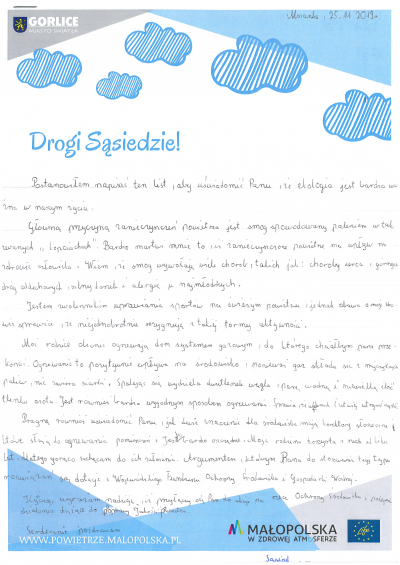 GORLICE
MIASTO ŚWIATŁA
25.11.2019r.
Drogi Sąsiedzie!
Postanowiłem napisać ten list, aby uświadomić Panu, iż ekologia jest bardzo wa-
żna w naszym życiu.
Główną przyczyną zanieczyszczeń powietrza jest smog spowodowany paleniem w tak
zwanych "kopciuchach". Bardzo martwi mnie to iż zanieczyszczone powietrze ma wpływ na
zdrowie człowieka. Wiem, iż smog wywołują wiele chorób, takich jak: choroby serca i
dróg oddechowych, alergie u najmłodszych.
Jestem zwolennikiem uprawiania sportów na świeżym powietrzu, jednak obawa o moje zdro-
wie sprawia, iż niejednokrotnie rezygnuję z takiej formy aktywności.
Moi rodzice obecnie ogrzewają dom systemem gazowym, do którego chciałbym pana prze-
konać. Ogrzewanie to pozytywnie wpływa na środowisko, ponieważ gaz składa się z
paliwa, nie zawiera siarki. Spalając się wydziela dwutlenek węgla i parę wodną i niewielką ilość
tlenku azotu. Jest również bardzo wygodnym sposobem ogrzewania
Pragnę również uświadomić Panu, jak duże znaczenie dla środowiska mają kolektory słoneczne,
które służą do ogrzewania pomieszczeń. Jest bardzo oszczędne. Moja rodzina korzysta z nich od kilku
lat, dlatego gorąco zachęcam do ich używania. Argumentem, którym Pana do stosowania tego typu
rozwiązań są dotacje z Wojewódzkiego Funduszu Ochrony Środowiska i Gospodarki Wodnej.
nadzieję, iż na rzecz Ochrony Środowiska, i
działania dążące do poprawy jakości powietrza.
Serdecznie pozdrawiam
WWW.POWIETRZE.MALOPOLSKA.PL
MAŁOPOLSKA
W ZDROWEJ ATMOSFERZE
Sąsiad